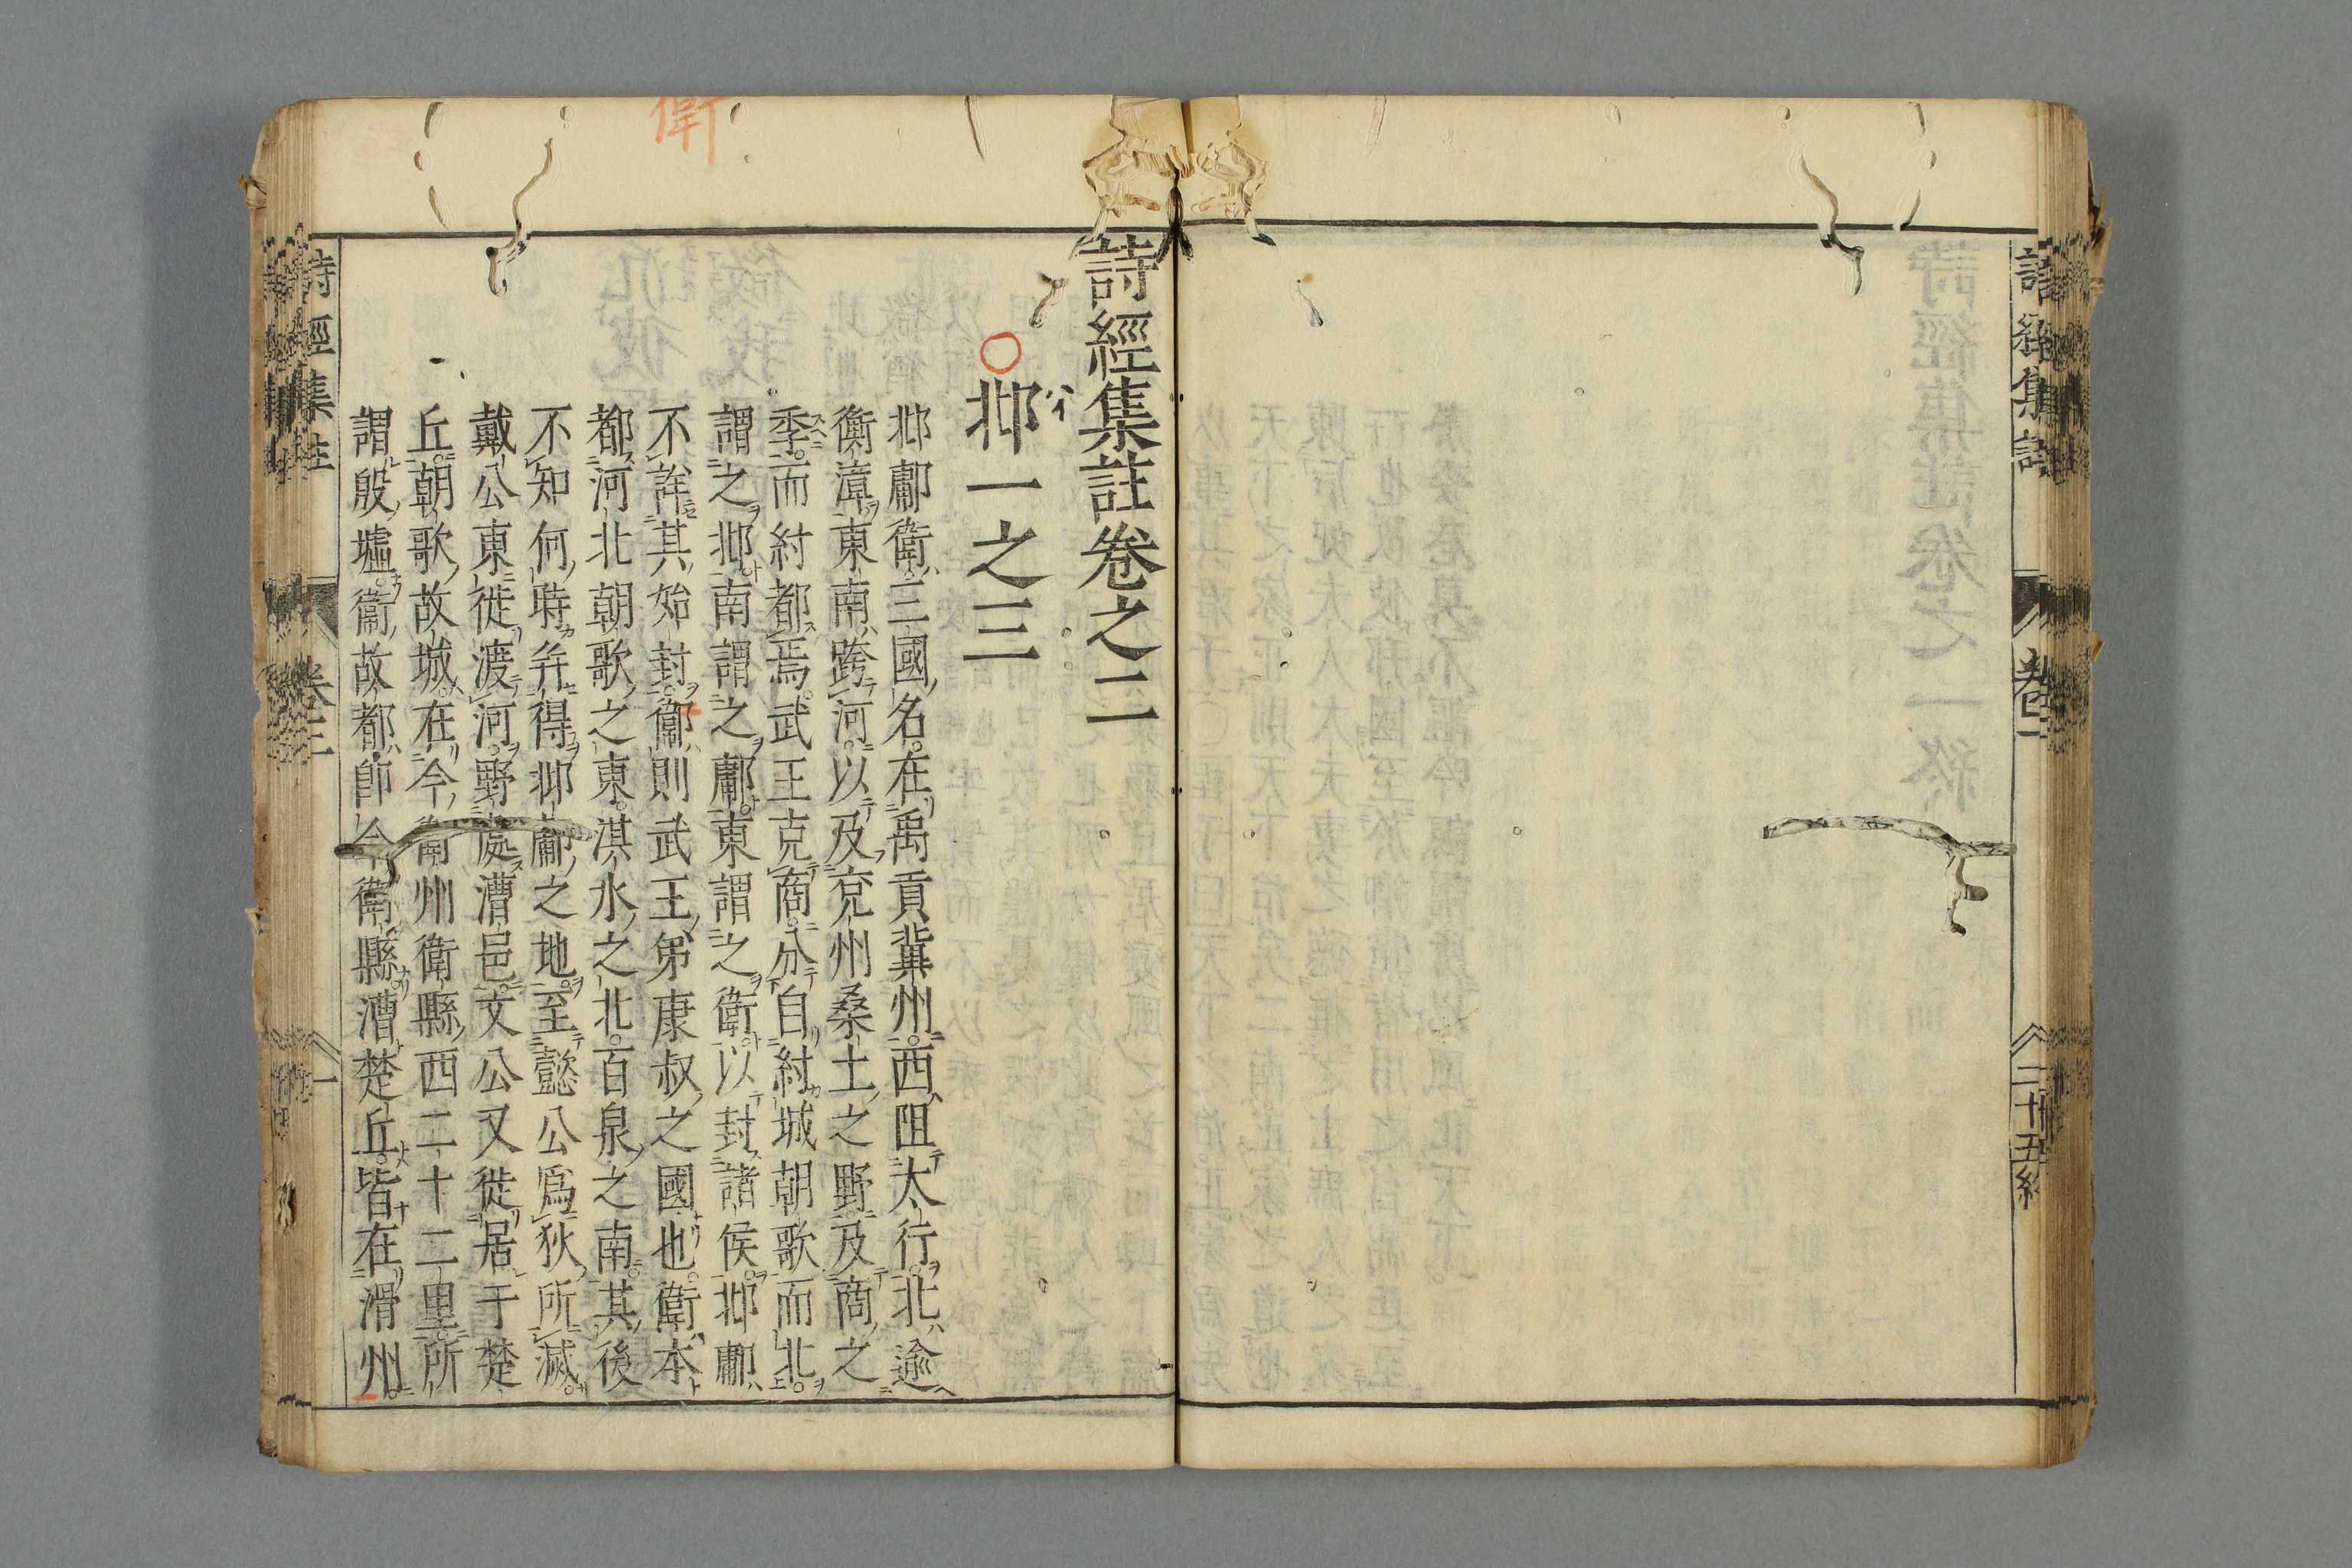 衛
詩經集註卷之二
邶一之三
邶鄘衛三國名在禹貢冀州西阻太行北逾
衡漳東南跨河以及兗州桑土之野及商之
季而紂都焉武王克商分自紂城朝歌而北
謂之邶南謂之鄘東謂之衛以封諸侯邶鄘
不詳其始封衛則武王弟康叔之國也衛本
都河北朝歌之東淇水之北百泉之南其後
不知何時并得邶鄘之地至懿公爲狄所滅
戴公東徙渡河野處漕邑文公又徙居于楚
丘朝歌故城在今衛州衛縣西二十二里所
謂殷墟衛故都即今衛縣漕楚丘皆在滑州
詩經集註